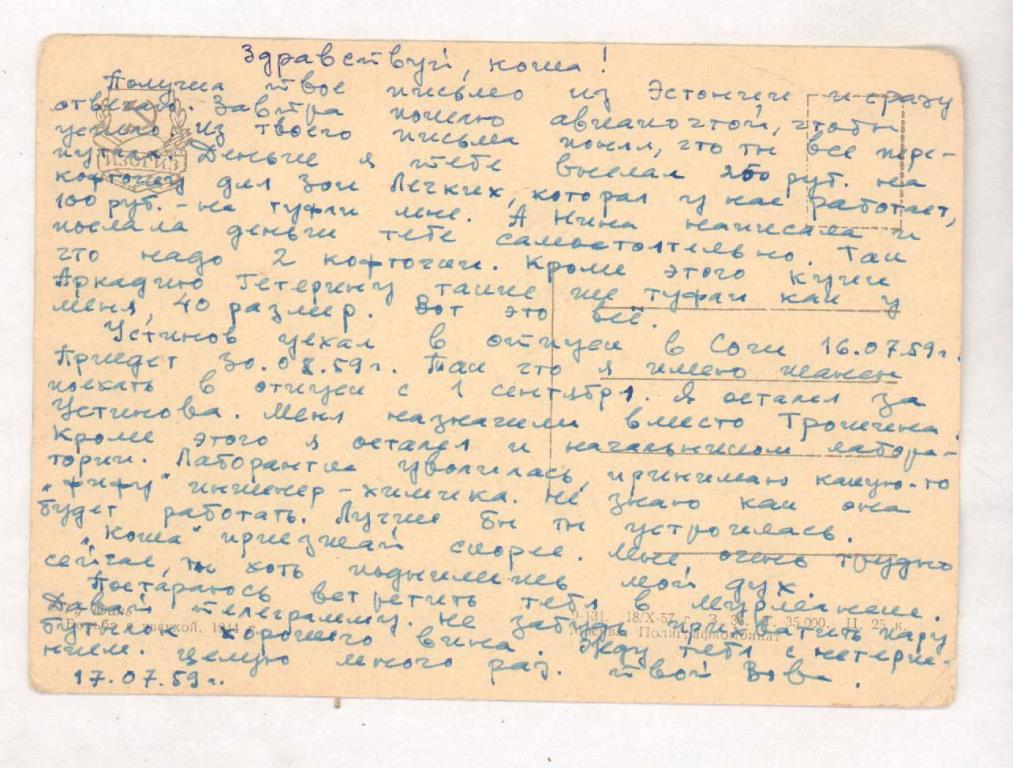 Здравствуй, коша!
Получил твое письмо из Эстонии и сразу
отвечаю. Завтра пошлю авиапочтой, чтобы
успело. Из твоего письма понял, что ты все пере-
путала. Деньги я тебе выслал 250 руб. на
кофточку для Зои Легких, которая у нас работает,
100 руб. - на туфли мне. А Нина написала и
послала деньги тебе самостоятельно. Так
что надо 2 кофточки. Кроме этого купи
Аркадию Тетерину такие же туфли как у
меня, 40 размер. Вот это всё.
Устинов уехал в отпуск в Сочи 16.07.59г.
Приедет 30.08.59г. Так что я имею шансы
поехать в отпуск с 1 сентября. Я остался за
Устинова. Меня назначили вместо Трошина.
Кроме этого я остался и начальником лабора-
тории. Лаборантка уволилась, принимаю какую-то
"фифу" инженер-химика. Не знаю как она
будет работать. Лучше бы ты устроилась.
"Коша" приезжай скорее. Мне очень трудно
сейчас, ты хоть поднимешь мой дух.
Постараюсь встретить тебя в Мурманске.
Давай телеграмму. Не забудь прихватить пару
бутылок хорошего вина. Жду тебя с нетерпе-
нием. Целую много раз. твой Вова.
17.07.59г.
ИЗОГИЗ
18/X-57 г. З. Т. 35.000. Ц. 25 к.
Москва. Полиграфкомбинат